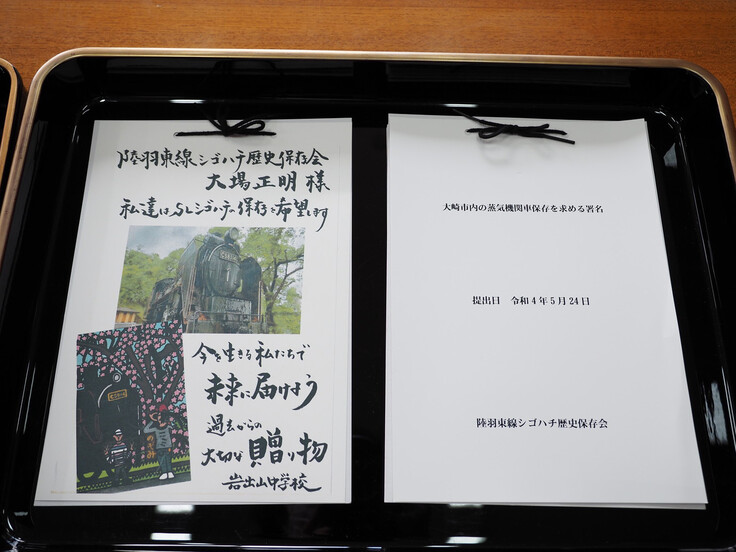 陸羽東線シゴハチ歴史保存会
大場正明 様
私達はSLシゴハチの保存を希望します
今を生きる私たちで
未来に届けよう
過去からの
大切な贈り物
岩出山中学校
大崎市内の蒸気機関車保存を求める署名
提出日 令和4年5月24日
陸羽東線シゴハチ歴史保存会